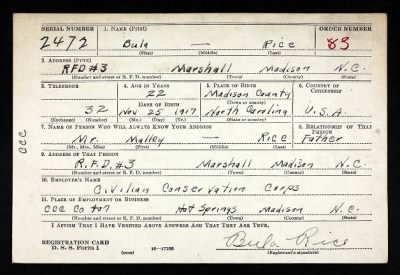 SERIAL NUMBER 1. NAME (Print) ORDER NUMBER
2472 Bula — Rice 83
(First) (Middle) (Last)
2. ADDRESS (Print)
RFD #3 Marshall Madison N.C.
(Number and street or R. F. D. number) (Town) (County) (State)
3. TELEPHONE 4. AGE IN YEARS 5. PLACE OF BIRTH 6. COUNTRY OF CITIZENSHIP
22 Madison County
(Town) (County)
DATE OF BIRTH
32 Nov 25 1917 North Carolina U.S.A.
(Exchange) (Number) (Mo.) (Day) (Yr.) (State or country)
7. NAME OF PERSON WHO WILL ALWAYS KNOW YOUR ADDRESS 8. RELATIONSHIP OF THAT PERSON
Mr. Malley — Rice Father
(Mr., Mrs., Miss) (First) (Middle) (Last)
9. ADDRESS OF THAT PERSON
R.F.D. #3 Marshall Madison N.C.
(Number and street or R. F. D. number) (Town) (County) (State)
10. EMPLOYER'S NAME
Civilian Conservation Corps
11. PLACE OF EMPLOYMENT OR BUSINESS
CCC Co Hot Springs Madison N.C.
(Number and street or R. F. D. number) (Town) (County) (State)
I AFFIRM THAT I HAVE VERIFIED ABOVE ANSWERS AND THAT THEY ARE TRUE.
REGISTRATION CARD
D. S. S. Form 1 (over) 16—17105 Bula Rice
(Registrant's signature)
CCC